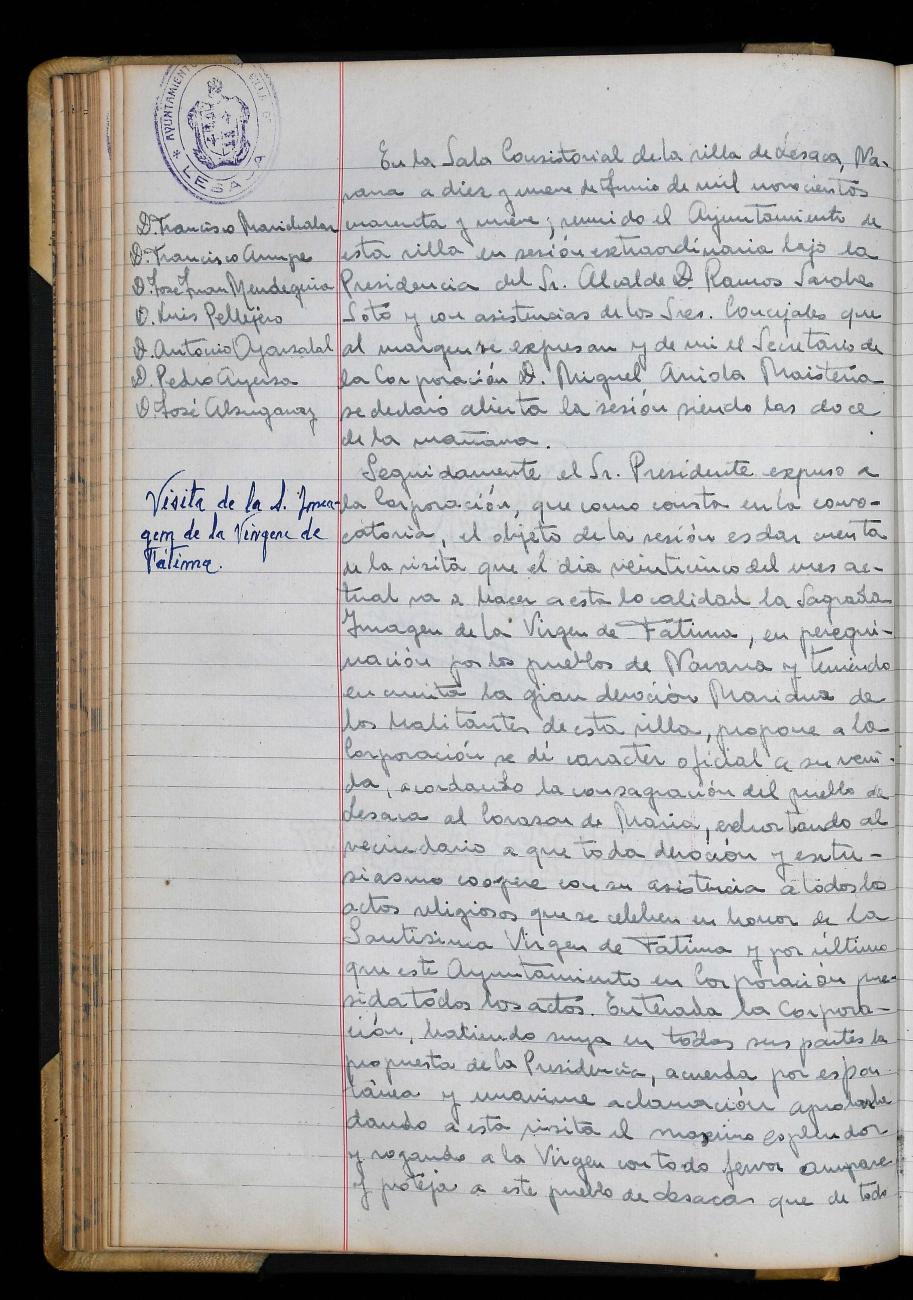 AYUNTAMIENTO VILLA DE
LESACA
D. Francisco Marichalar
D. Francisco
D. José Juan Mendeguia
D. Luis Pellejero
D. Antonio Oyarzabal
D. Pedro
D. José Alzugaray
Visita de la S. Ima-
gem de la Virgen de
Fátima.
En la Sala Consistorial de la villa de Lesaca, Na-
varra a diez y nueve de Junio de mil novecientos
cuarenta y nueve; reunido el Ayuntamiento de
esta villa en sesión extraordinaria bajo la
Presidencia del Sr. Alcalde D. Ramos Sarobe
Soto y con asistencias de los Sres. Concejales que
al margen se expresan y de mi el Secretario de
la Corporación D. Miguel Arriola
se declaró abierta la sesión siendo las doce
de la mañana.
Seguidamente el Sr. Presidente expuso a
la Corporación, que como consta en la convo-
catoria, el objeto de la sesión es dar cuenta
de la visita que el dia veinticinco del mes ac-
tual va a hacer a esta localidad la Sagrada
Imagen de la Virgen de Fatima, en peregri-
nación por los pueblos de Navarra y teniendo
en cuenta la gran devoción Mariana de
los habitantes de esta villa, propone a la
Corporación se dé caracter oficial a su veni-
da, acordando la consagración del pueblo de
Lesaca al Corazon de Maria, exhortando al
vecindario a que toda devoción y entu-
siasmo coopere con su asistencia a todos los
actos religiosos que se celeben en honor de la
Santisima Virgen de Fatima y por último
que este Ayuntamiento en Corporación pre-
sida todos los actos. Enterada la Corpora-
ción, haciendo suya en todas sus partes la
propuesta de la Presidencia, acuerda por espon-
tánea y unanime aclamación aprobarla
dando a esta visita el maximo esplendor
y rogando a la Virgen con todo fervor ampare
y proteja a este pueblo de Lesaca que de todo